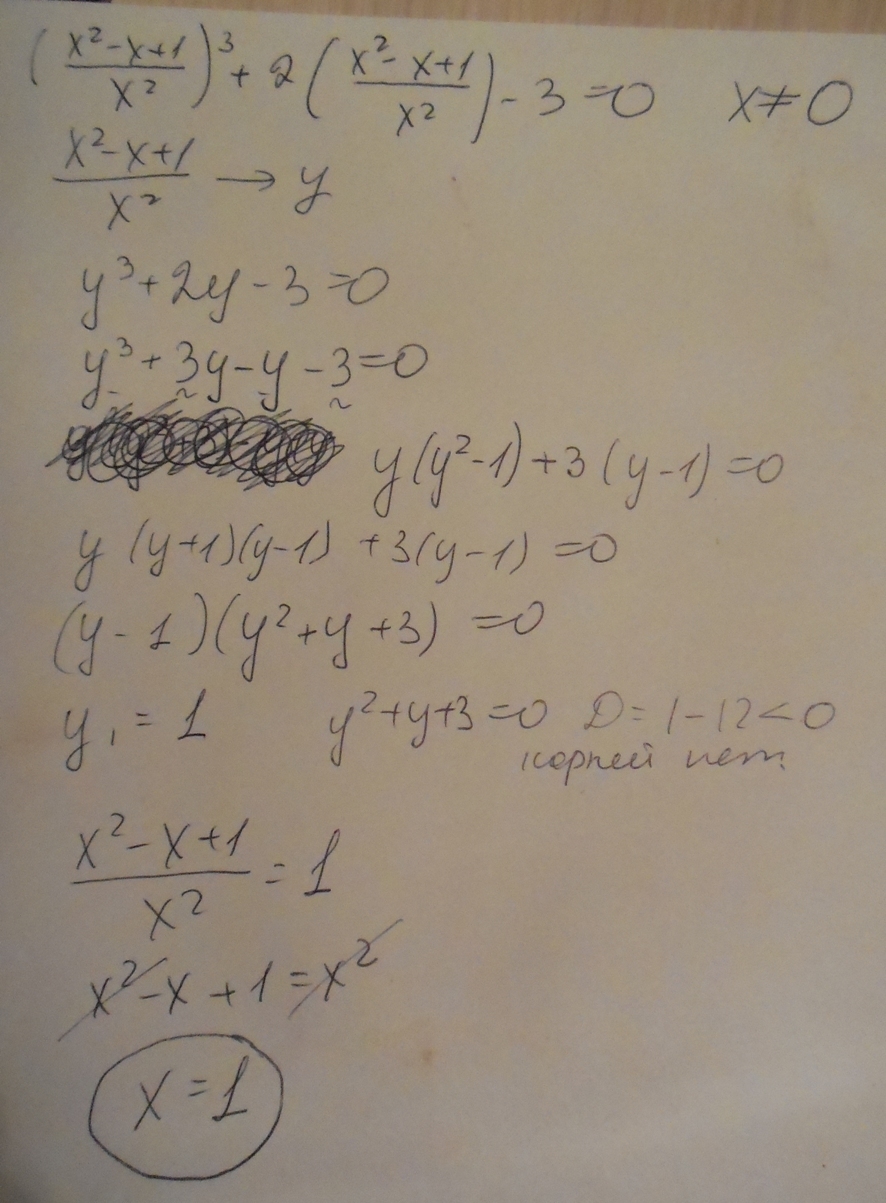 (x²-x+1/x²)³ + 2(x²-x+1/x²) - 3 = 0 x≠0
x²-x+1/x² → y
y³ + 2y - 3 = 0
y³ + 3y - y - 3 = 0
y(y²-1) + 3(y-1) = 0
y(y+1)(y-1) + 3(y-1) = 0
(y-1)(y²+y+3) = 0
y₁ = 1 y²+y+3 = 0 D = 1-12 < 0
корней нет.
x²-x+1/x² = 1
x²-x+1 = x²
x = 1